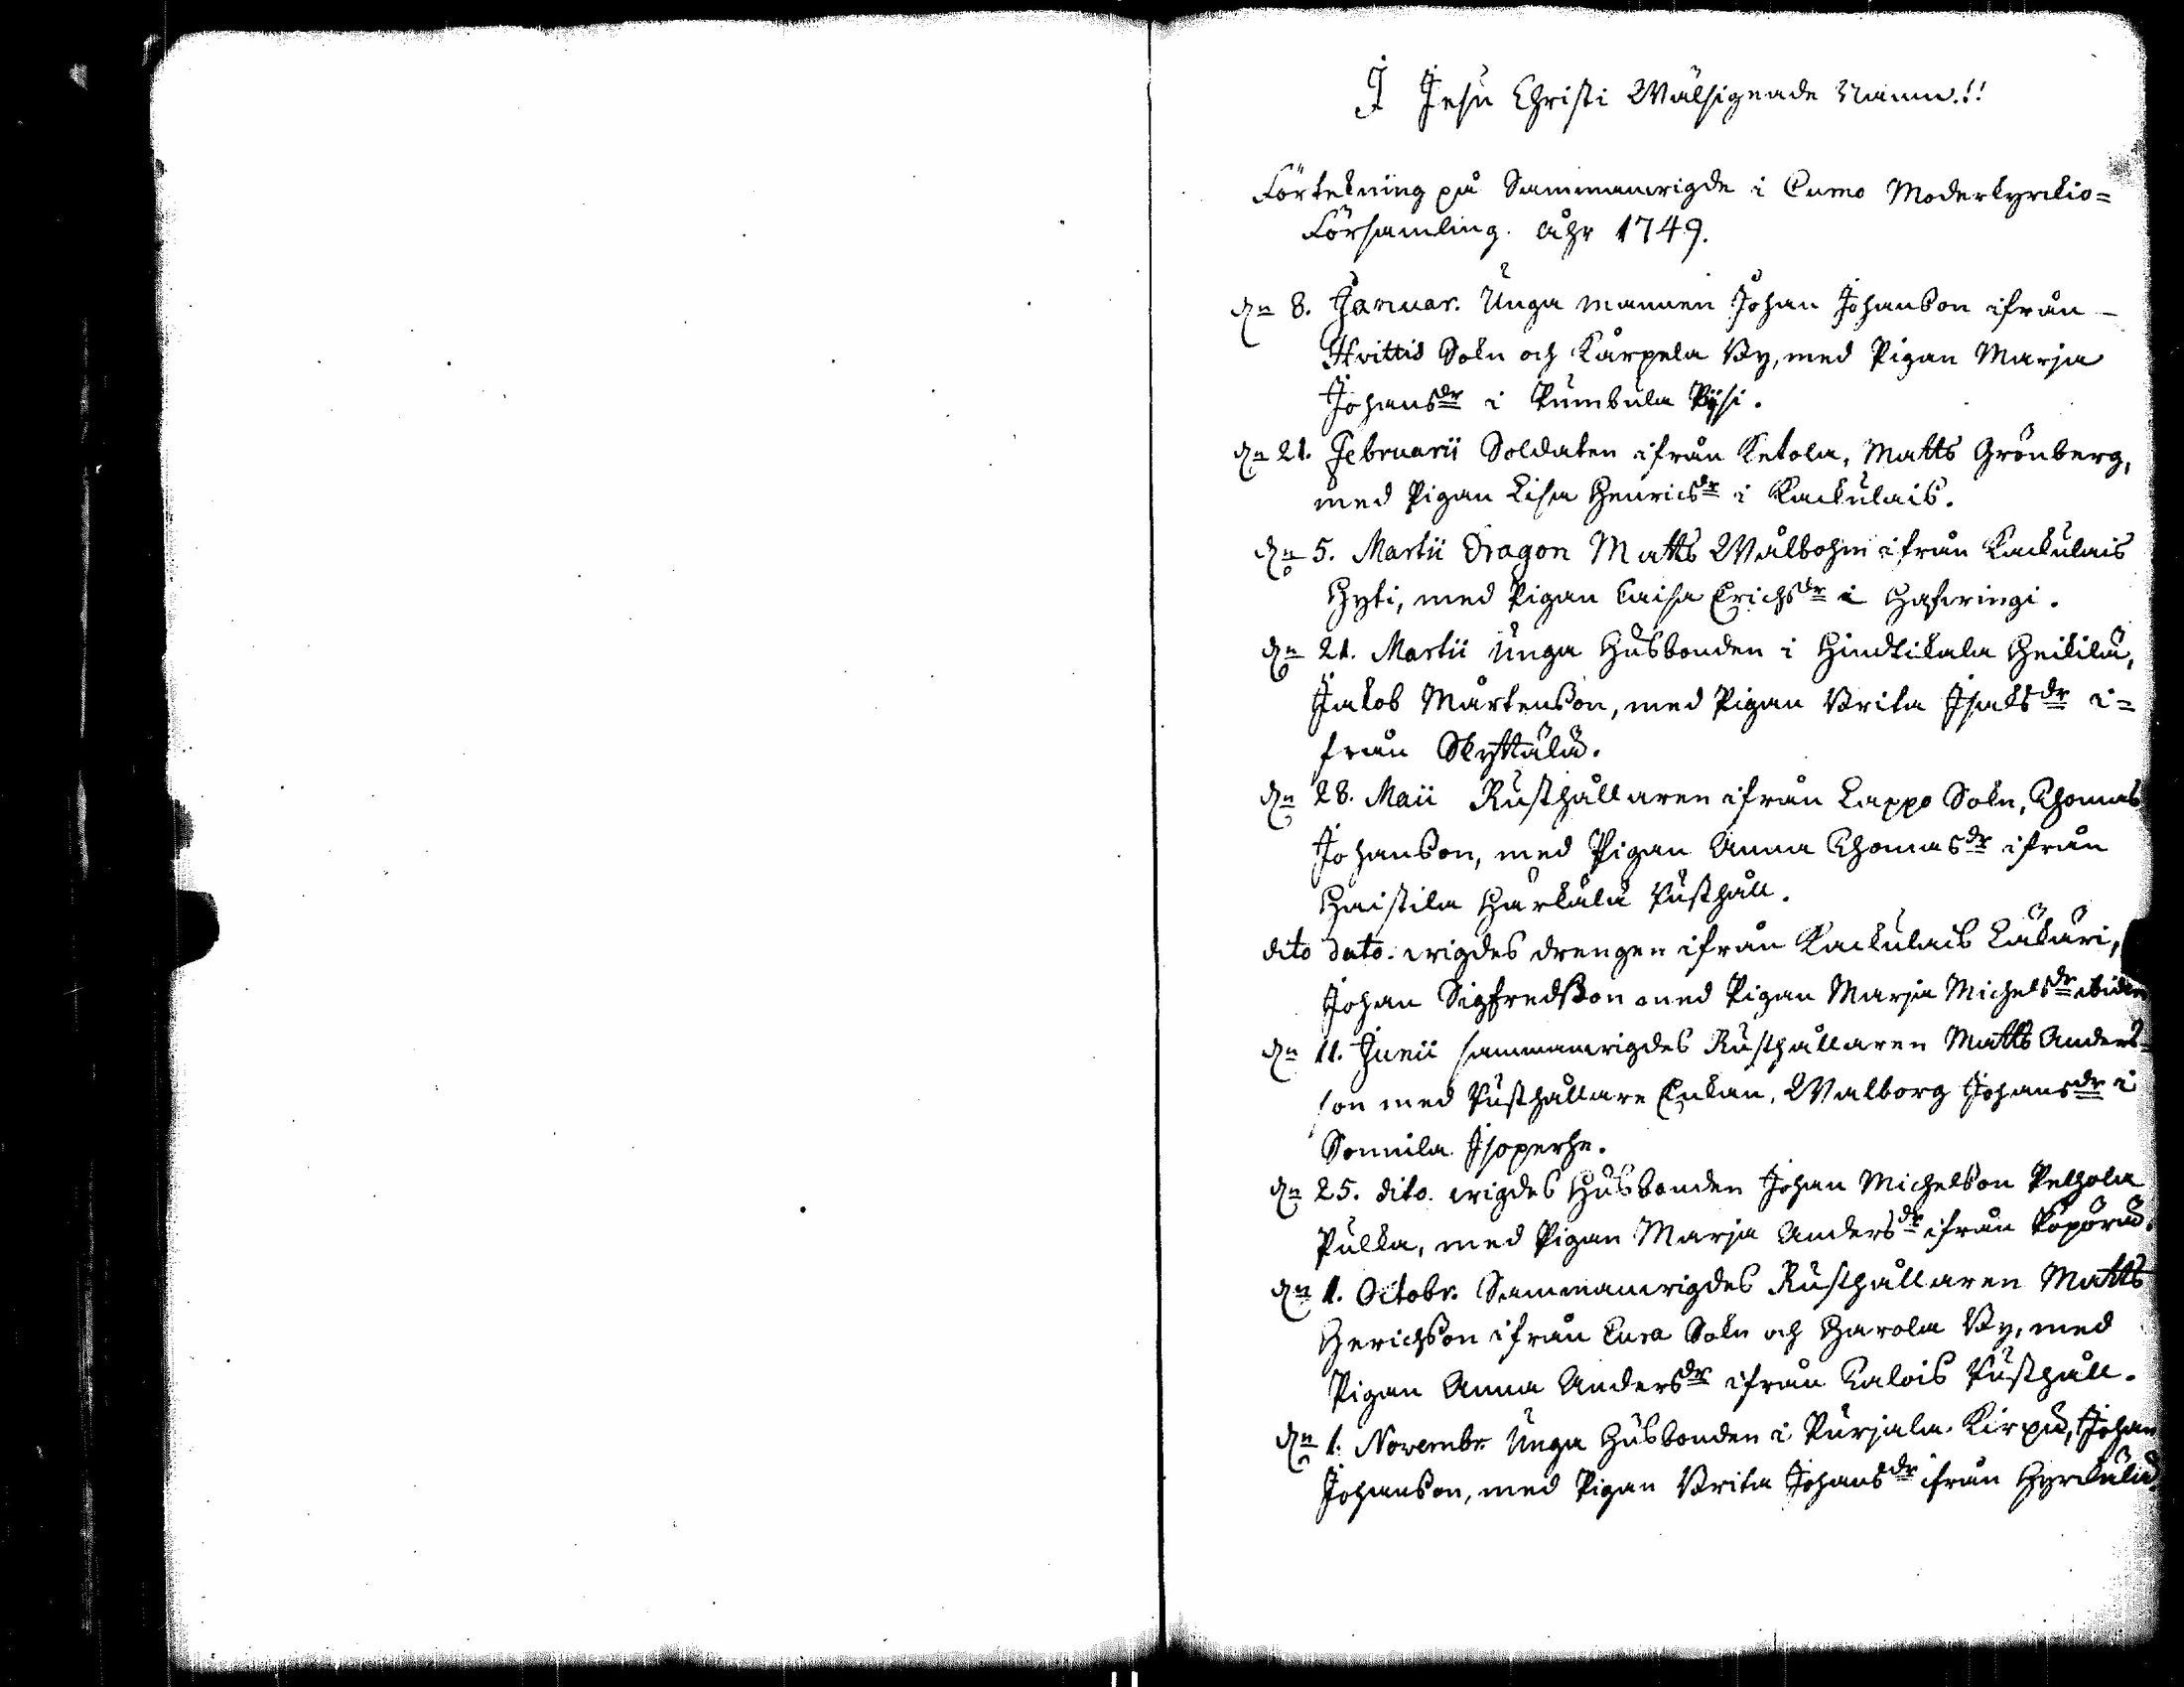 I Jesu Christi Wälsignade Namn.!!
Förtekning på Sammanwigde i Cumo Moderkyrckio=
Församling. åhr 1749.
dn 8. Januar. Unga mannen Johan Johanson ifrån
Hvittis Sokn och Karpela By, med Pigan Marja
Johansdr i Pumbula Pysi.
dn 21. Februarii Soldaten ifrån Ketola, Matts Grönberg,
med Pigan Lisa Henricsdr i Kackulais.
dn 5. Martii Dragon Matts Wålbohm ifrån Kackulais
Hyti, med Pigan Caisa Erichsdr i Hafwingi.
dn 21. Martii Unga Husbonden i Hindtikala Heikilä,
Jakob Mårtenson, med Pigan Brita Isaksdr i=
från Skyttälä.
dn 28. Maii Rusthållaren ifrån Lappo Sokn, Thomas
Johanson, med Pigan Anna Thomasdr ifrån
Haistila Härkälä Rusthåll.
dito dato. wigdes drengen ifrån Kackulais Lukuri,
Johan Sigfredson med Pigan Marja Michelsdr ibidem
dn 11. Junii sammanwigdes Rusthållaren Matts Anders=
son med Rusthållare Enkan, Walborg Johansdr i
Sonnila Isoperhe.
dn 25. dito. wigdes Husbonden Johan Michelson Pelhola
Pulla, med Pigan Marja Andersdr ifrån Köpörä.
dn 1. Octobr. Sammanwigdes Rusthållaren Matts
Herichson ifrån Eura Sokn och Harola By, med
Pigan Anna Andersdr ifrån Kalois Rusthåll.
dn 1. Novembr Unga Husbonden i Purjala Kirpu, Johan
Johanson, med Pigan Brita Johansdr ifrån Hyrckulä.